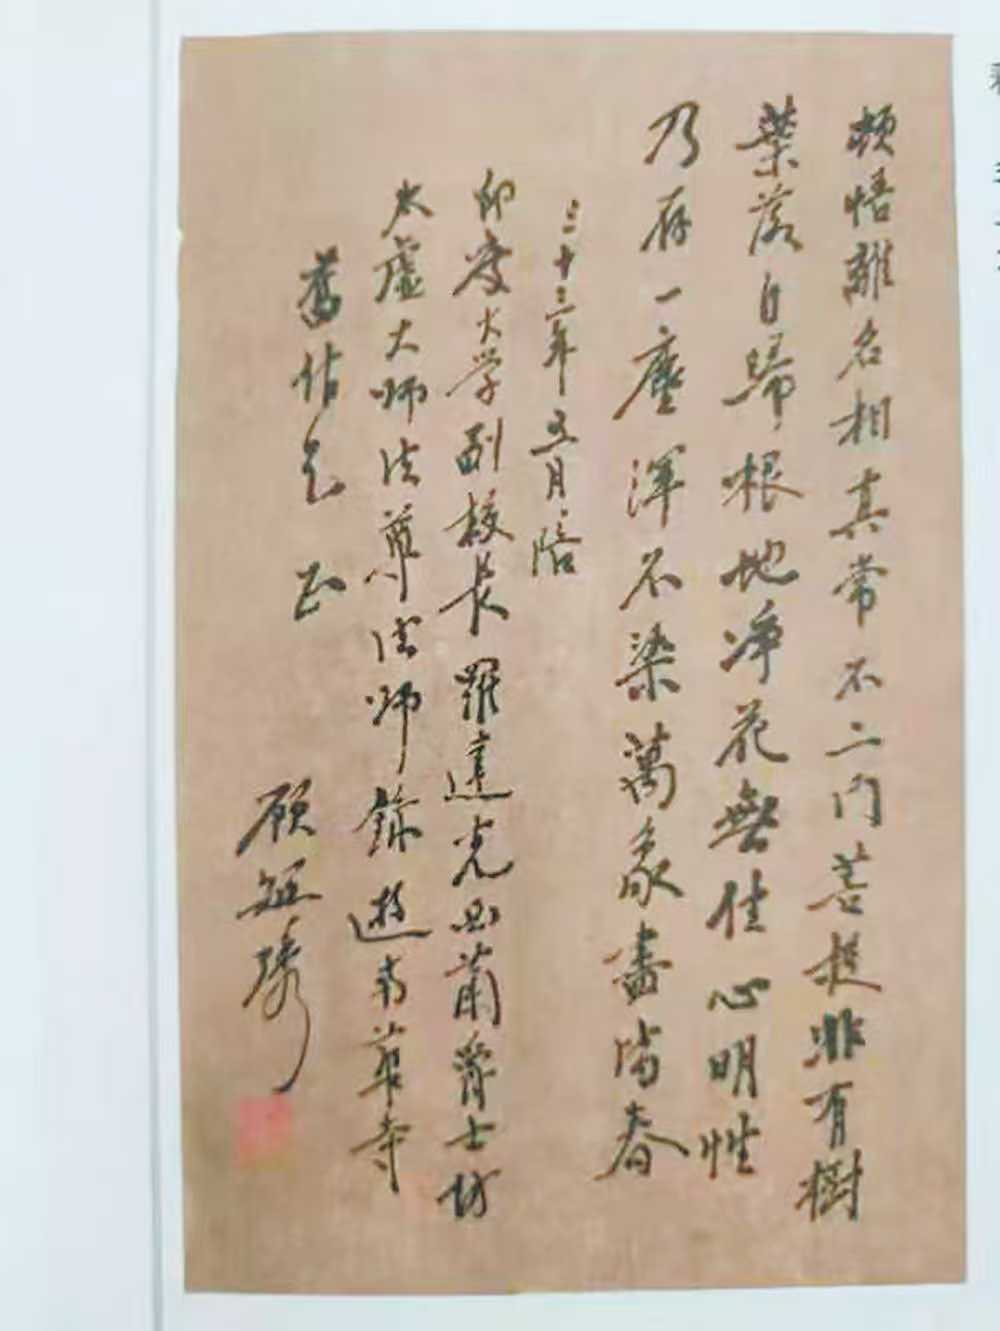 頓悟離名相真常不二門菩提非有樹
葉落自歸根地淨花無住心明性
乃存一塵渾不染萬象盡皆春
三十三年五月陪
印度大学副校長羅達克蕭爵士訪
太虛大師法尊法師遊南華寺
舊作乞正
顧毓琇